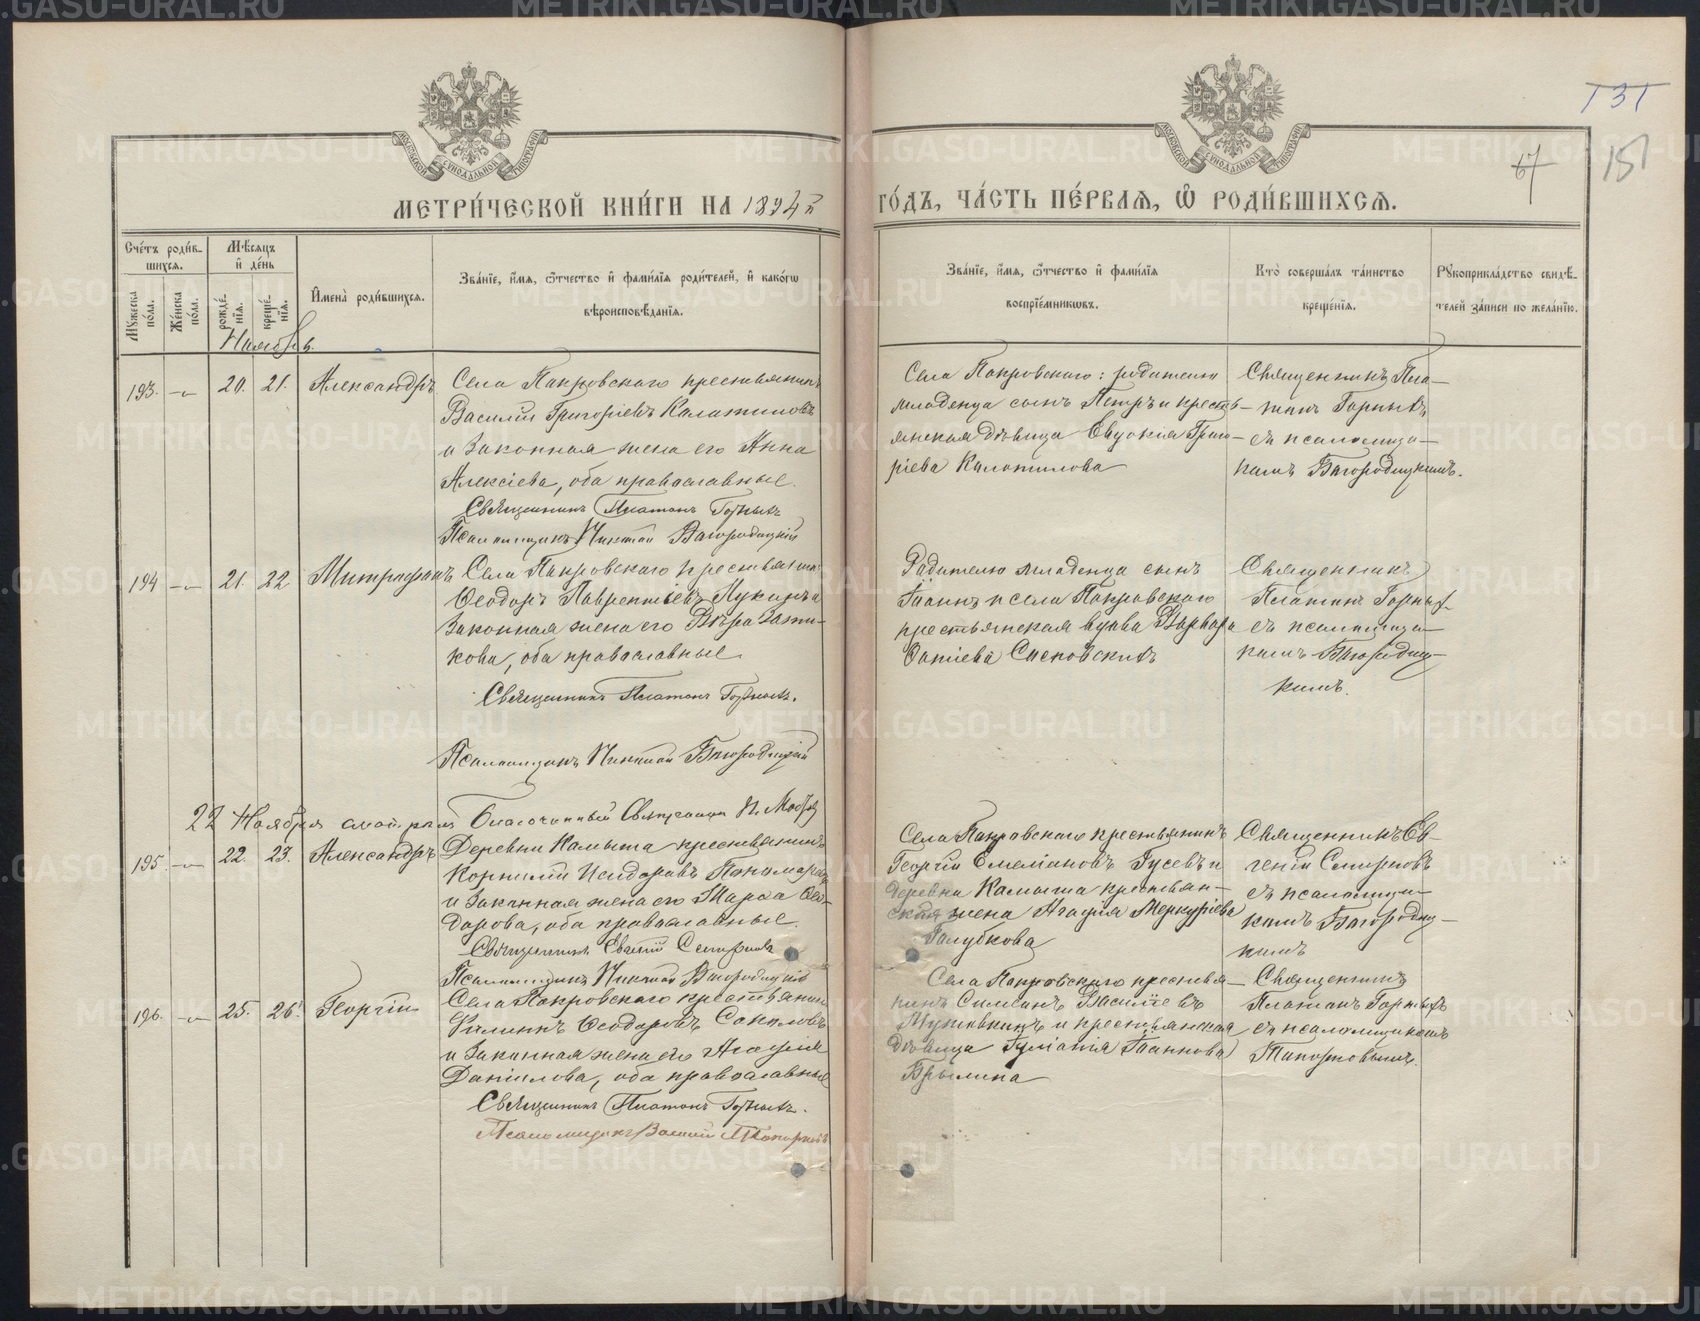 МЕТРИ́ЧЕСКОЙ КНИ́ГИ НА 1894 й
ГО́ДЪ, ЧА́СТЬ ПЕ́РВАЯ, Ѿ РОДИ́ВШИХСЯ.
131
67
151
Сче́тъ роди́в-
шихся.
Мѣ́сяцъ
и́ де́нь
Му́жеска
по́ла.
Же́нска
по́ла.
рожде́-
нія.
креще́-
нія.
И҆мена̀ роди́вшихся.
Зва́ніе, и҆́мя, ѻ҆́тчество и҆ фами́лія роди́телей, и҆ како́гѡ
вѣроисповѣ́данія.
Зва́ніе, и҆́мя, ѻ҆́тчество и҆ фами́лія
воспріе́мниковъ.
Кто̀ соверша́лъ та́инство
креще́нія.
Рꙋкоприкла́дство свидѣ́-
телей за́писи по жела́нію.
Ноябрь.
193. 20. 21. Александръ
Села Покровскаго крестьянинъ
Василій Григоріевъ Калотиловъ
и законная жена его Анна
Алексіева, оба православные.
Священникъ Платонъ Горныхъ
Псаломщикъ Никтай Богородицкій
Села Покровскаго: родителю
младенца сынъ Петръ и кресть-
янская дѣвица Евдокія Григо-
ріева Калотилова
Священникъ Пла-
тонъ Горныхъ
съ псаломщи-
комъ Богородицкимъ.
194 21. 22 Митрофанъ
Села Покровскаго крестьянинъ
Ѳеодоръ Лаврентьевъ и
законная жена его Вѣра
кова, оба православные
Священникъ Платонъ Горныхъ.
Псаломщикъ Никтай Богородицкій
Родителю младенца сынъ
Іоаннъ и села Покровскаго
крестьянская вдова Варвара
Священникъ
Платонъ Горныхъ
съ псаломщи-
комъ Богородиц-
кимъ.
22 Ноября Благочинный Священникъ
195. 22. 23. Александръ
Деревни Камыша крестьянинъ
Корнилій Исидоровъ Пономаревъ
и законная жена его Марѳа Ѳео-
дорова, оба православные.
Священникъ Евгеній Смирновъ
Псаломщикъ Никтай Богородицкій
Села Покровскаго крестьянинъ
Георгій Емеліановъ Гусевъ и
деревни Камыша крестьян-
ская жена Агафія Меркуріева
Голубкова
Священникъ Ев-
геній Смирновъ
съ псаломщи-
комъ Богородиц-
кимъ
196. 25. 26. Георгій
Села Покровскаго крестьянинъ
Филиппъ Ѳеодоровъ Соколовъ
и законная жена его Агафія
Даніилова, оба православные
Священникъ Платонъ Горныхъ.
Псаломщикъ Василій Топорковъ
Села Покровскаго крестья-
нинъ Симеонъ Василіевъ
и крестьянская
дѣвица Іуліанія Іоаннова
Брылина
Священникъ
Платонъ Горныхъ
съ псаломщикомъ
Топорковымъ.
METRIKI.GASO-URAL.RU